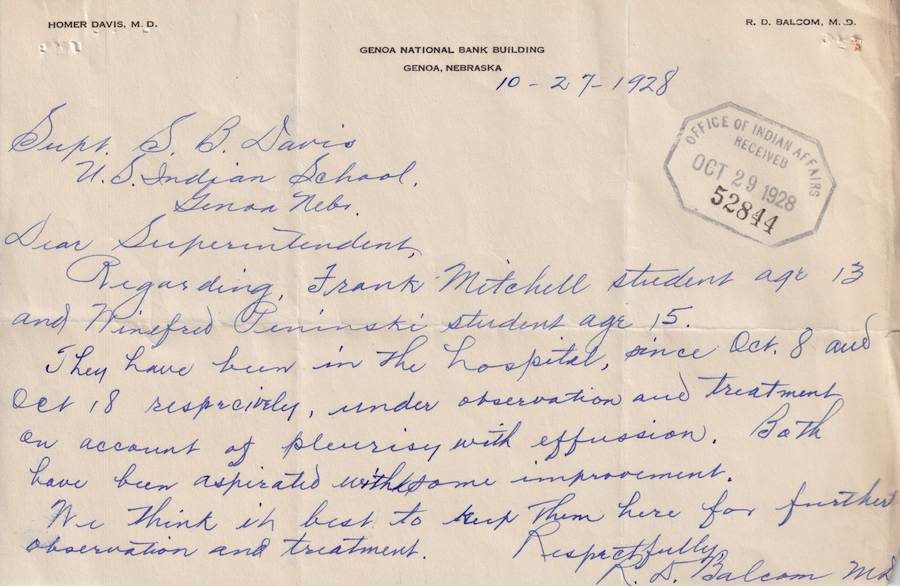 HOMER DAVIS, M. D.
R. D. BALCOM, M. D.
GENOA NATIONAL BANK BUILDING
GENOA, NEBRASKA
10-27-1928
OFFICE OF INDIAN AFFAIRS
RECEIVED
OCT 29 1928
52844
Supt. S. B. Davis
U.S. Indian School.
Genoa Nebr.
Dear Superintendent,
Regarding, Frank Mitchell student age 13
and Winefred Peninski student age 15.
They have been in the hospital, since Oct. 8 and
Oct 18 respecively, under observation and treatment
on account of pleurisy with effussion. Both
have been aspirated with some improvement.
We think it best to keep them here for further
observation and treatment.
Respectfully
R. D. Balcom MD